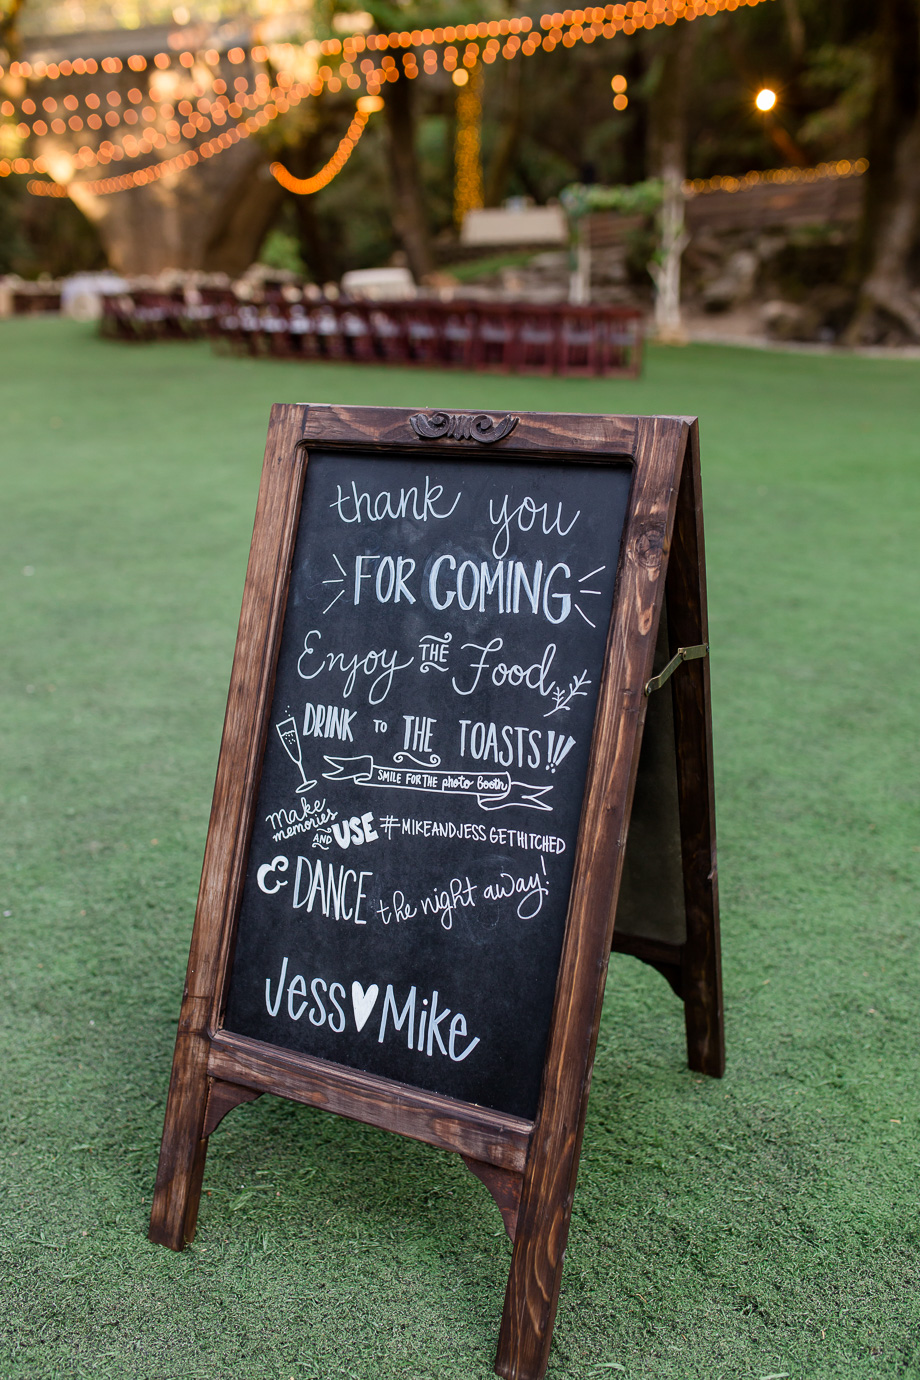 thank you
FOR COMING
Enjoy THE Food
DRINK TO THE TOASTS!!!
SMILE FOR THE photo booth
make memories AND USE #MIKEANDJESSGETHITCHED
& DANCE the night away!
Jess ♥ Mike